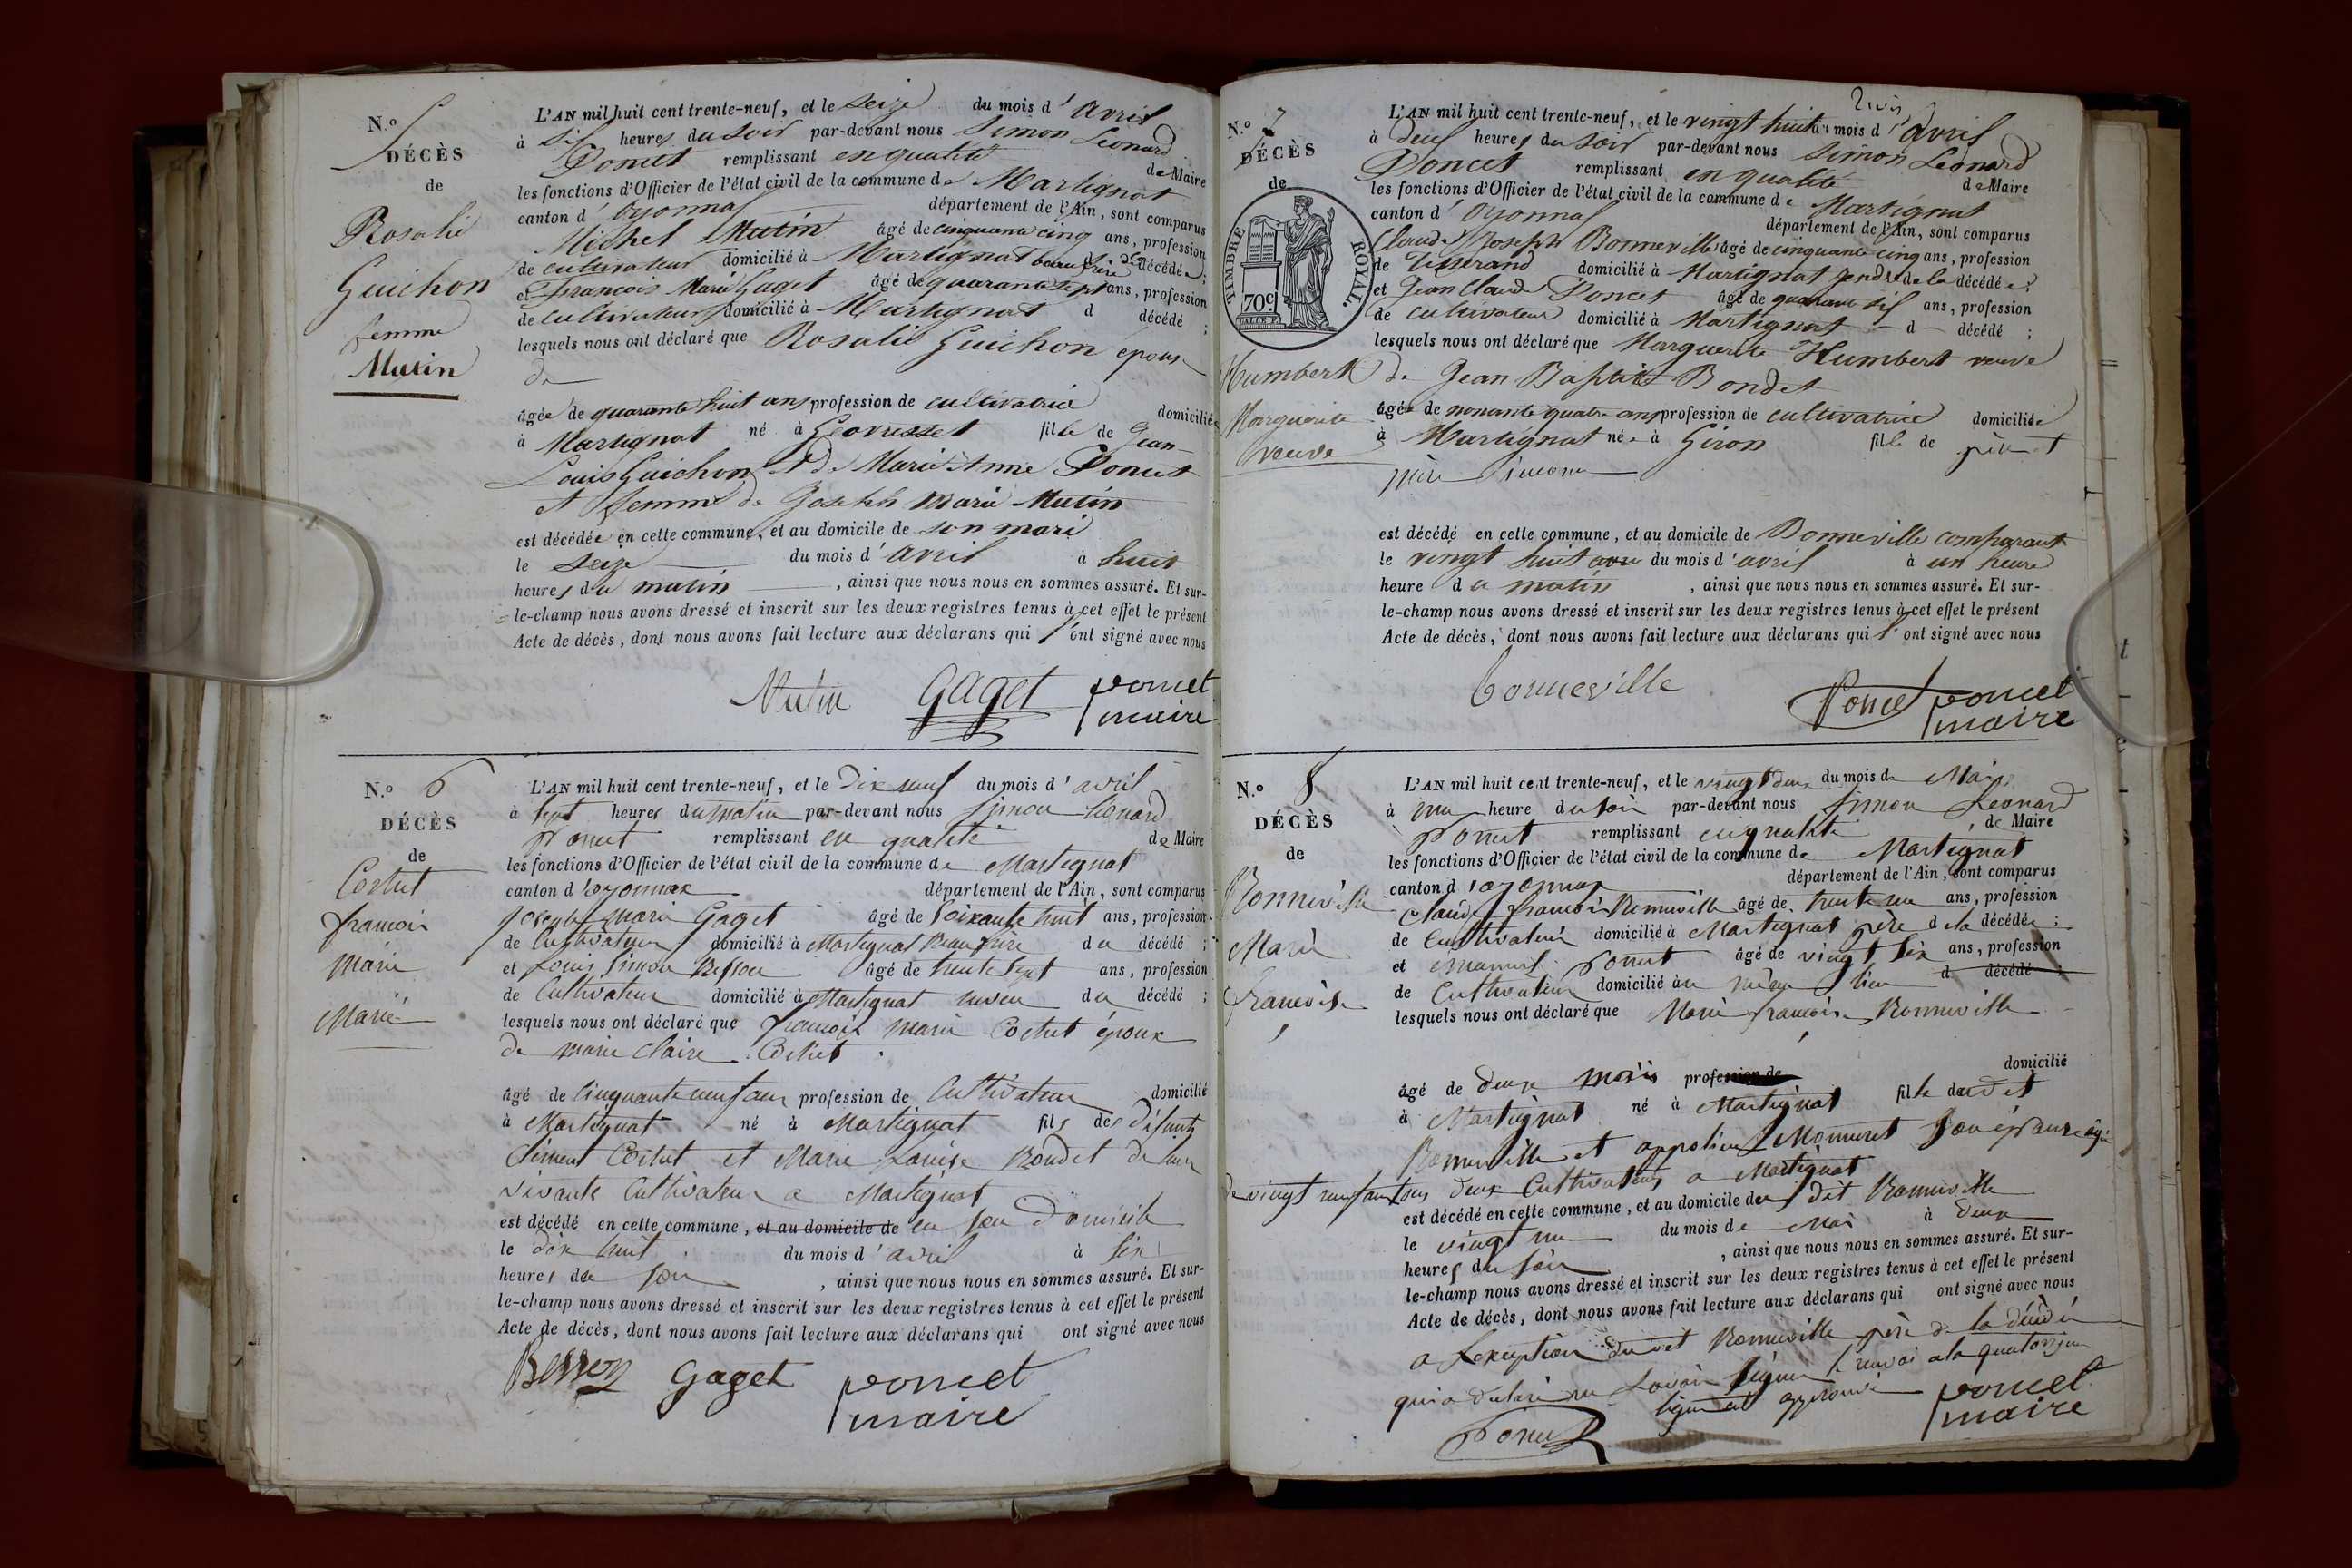 N.o 5
DÉCÈS
de
Rosalie
Guichon
femme
Mutin
L'AN mil huit cent trente-neuf, et le seize du mois d'avril
à six heures du soir par-devant nous Simon Leonard
Poncet remplissant en qualité de Maire
les fonctions d'Officier de l'état civil de la commune de Martignat
canton d'oyonnax département de l'Ain, sont comparus
Michel Mutin âgé de cinquante cinq ans, profession
de cultivateur domicilié à Martignat beau frère de la décédée;
et François Marie Gaget âgé de quarante sept ans, profession
de cultivateur domicilié à Martignat d décédé ;
lesquels nous ont déclaré que Rosalie Guichon épouse
de
âgée de quarante huit ans profession de cultivatrice domiciliée
à Martignat né à Geovresset fille de Jean
Louis Guichon et de Marie Anne Poncet
et femme de Joseph Marie Mutin
est décédée en cette commune, et au domicile de son mari
le seize du mois d'avril à huit
heures du matin , ainsi que nous nous en sommes assuré. Et sur-
le-champ nous avons dressé et inscrit sur les deux registres tenus à cet effet le présent
Acte de décès, dont nous avons fait lecture aux déclarans qui l'ont signé avec nous
Mutin Gaget poncet
maire
N.o 6
DÉCÈS
de
Cochet
francois
marie
Marié
L'AN mil huit cent trente-neuf, et le Dix neuf du mois d'avril
à Sept heures du matin par-devant nous Simon Léonard
Poncet remplissant en qualité de Maire
les fonctions d'Officier de l'état civil de la commune de Martignat
canton d'oyonnax département de l'Ain, sont comparus
joseph marie Gaget âgé de Soixante huit ans, profession
de Cultivateur domicilié à Martignat Beau frère du décédé ;
et Louis Simon Besson âgé de trente Sept ans, profession
de Cultivateur domicilié à Martignat neveu du décédé ;
lesquels nous ont déclaré que françois marie Cochet époux
de marie Claire Cochet
âgé de Cinquante neuf ans profession de Cultivateur domicilié
à Martignat né à Martignat fils des défunts
Clément Cochet et Marie Louise Bondet de leur
vivants Cultivateur a Martignat
est décédé en cette commune, et au domicile de en son Domicile
le dix huit du mois d'avril à Six
heures du Soir , ainsi que nous nous en sommes assuré. Et sur-
le-champ nous avons dressé et inscrit sur les deux registres tenus à cet effet le présent
Acte de décès, dont nous avons fait lecture aux déclarans qui ont signé avec nous
Besson Gaget poncet
maire
N.o 7
DÉCÈS
de
TIMBRE ROYAL.
70c
Humbert
Marguerite
veuve
L'AN mil huit cent trente-neuf, et le vingt huit du mois d'avril
à deux heures du soir par-devant nous Simon Leonard
Poncet remplissant en qualité de Maire
les fonctions d'Officier de l'état civil de la commune de Martignat
canton d'oyonnax département de l'Ain, sont comparus
Claude Joseph Bonneville âgé de cinquante cinq ans, profession
de tisserand domicilié à Martignat gendre de la décédée;
et Jean Claude Poncet âgé de quarante six ans, profession
de cultivateur domicilié à Martignat d décédé ;
lesquels nous ont déclaré que Marguerite Humbert veuve
de Jean Baptiste Bondet
âgée de nonante quatre ans profession de cultivatrice domiciliée
à Martignat née à Giron fille de père et
mère
est décédé en cette commune, et au domicile de Bonneville comparant
le vingt huit du mois d'avril à un heure
heure du matin , ainsi que nous nous en sommes assuré. Et sur-
le-champ nous avons dressé et inscrit sur les deux registres tenus à cet effet le présent
Acte de décès, dont nous avons fait lecture aux déclarans qui l'ont signé avec nous
bonneville Poncet poncet
maire
N.o 8
DÉCÈS
de
Bonneville
Marie
francoise
L'AN mil huit cent trente-neuf, et le vingt deux du mois de Mai
à une heure du soir par-devant nous Simon Leonard
Poncet remplissant en qualité de Maire
les fonctions d'Officier de l'état civil de la commune de Martignat
canton d'oyonnax département de l'Ain, sont comparus
Claude francois Bonneville âgé de trente un ans, profession
de Cultivateur domicilié à Martignat père de la décédée ;
et Emanuel Poncet âgé de vingt Six ans, profession
de Cultivateur domicilié au même lieu d décédé
lesquels nous ont déclaré que Marie francoise Bonneville
âgé de deux mois profession de domicilié
à Martignat né à Martignat fille dudit
Bonneville et appoline Monneret Son épouse âgée
de vingt neuf ans tous deux Cultivateurs a Martignat
est décédé en cette commune, et au domicile du dit Bonneville
le vingt un du mois de Mai à deux
heures du soir , ainsi que nous nous en sommes assuré. Et sur-
le-champ nous avons dressé et inscrit sur les deux registres tenus à cet effet le présent
Acte de décès, dont nous avons fait lecture aux déclarans qui ont signé avec nous
a L'exception dudit Bonneville père de la décédée
qui a déclaré ne Savoir Signer renvoi a la quatorzieme
ligne est approuvé
Poncet poncet
maire